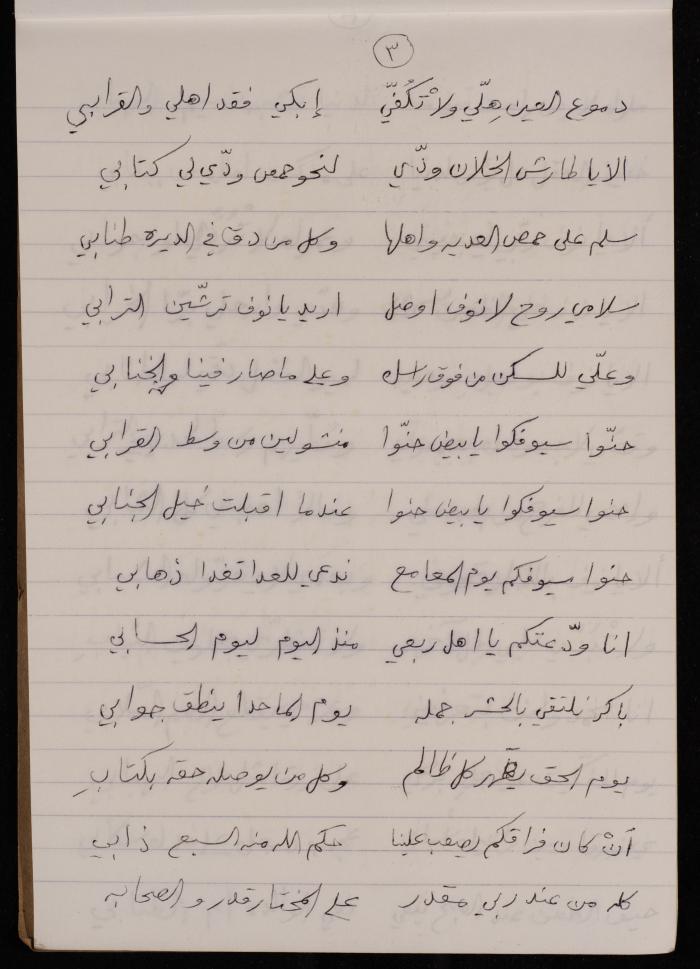 ٣
دموع العين هِلّي ولاْ تكُفيّ إبكي فقد اهلي والقرايبي
الا يا طارش الخلان ودّي لنحو حمص ودّي لي كتابي
سلم على حمص العديه واهلها وكل من دقا في الديره طنابي
سلامي روح لا نوف اوصل اريد يا نوف ترشّين الترابي
وعلّي للسكن من فوق راسه وعلى ما صار فينا والجنابي
حنّوا سيوفكوا يا بيض حنّوا منشولين من وسط القرابي
حنوا سيوفكوا يا بيض حنوا عندما اقبلت خيل الجنابي
حنوا سيوفكم يوم المعامع ندعي للعدا تغدا ذهابي
انا ودّعتكم يا اهل ربعي منذ اليوم ليوم الحسابي
باكر نلتقي بالحشر جمله يوم الما حدا ينطق جوابي
يوم الحق يقهر كل ظالم وكل من يوصله حقه بكتابِ
أنْ كان فراقكم يصعب علينا حكم الله منه السبع ذابي
كله من عند ربي مقدر على المختار قدر والصحابه